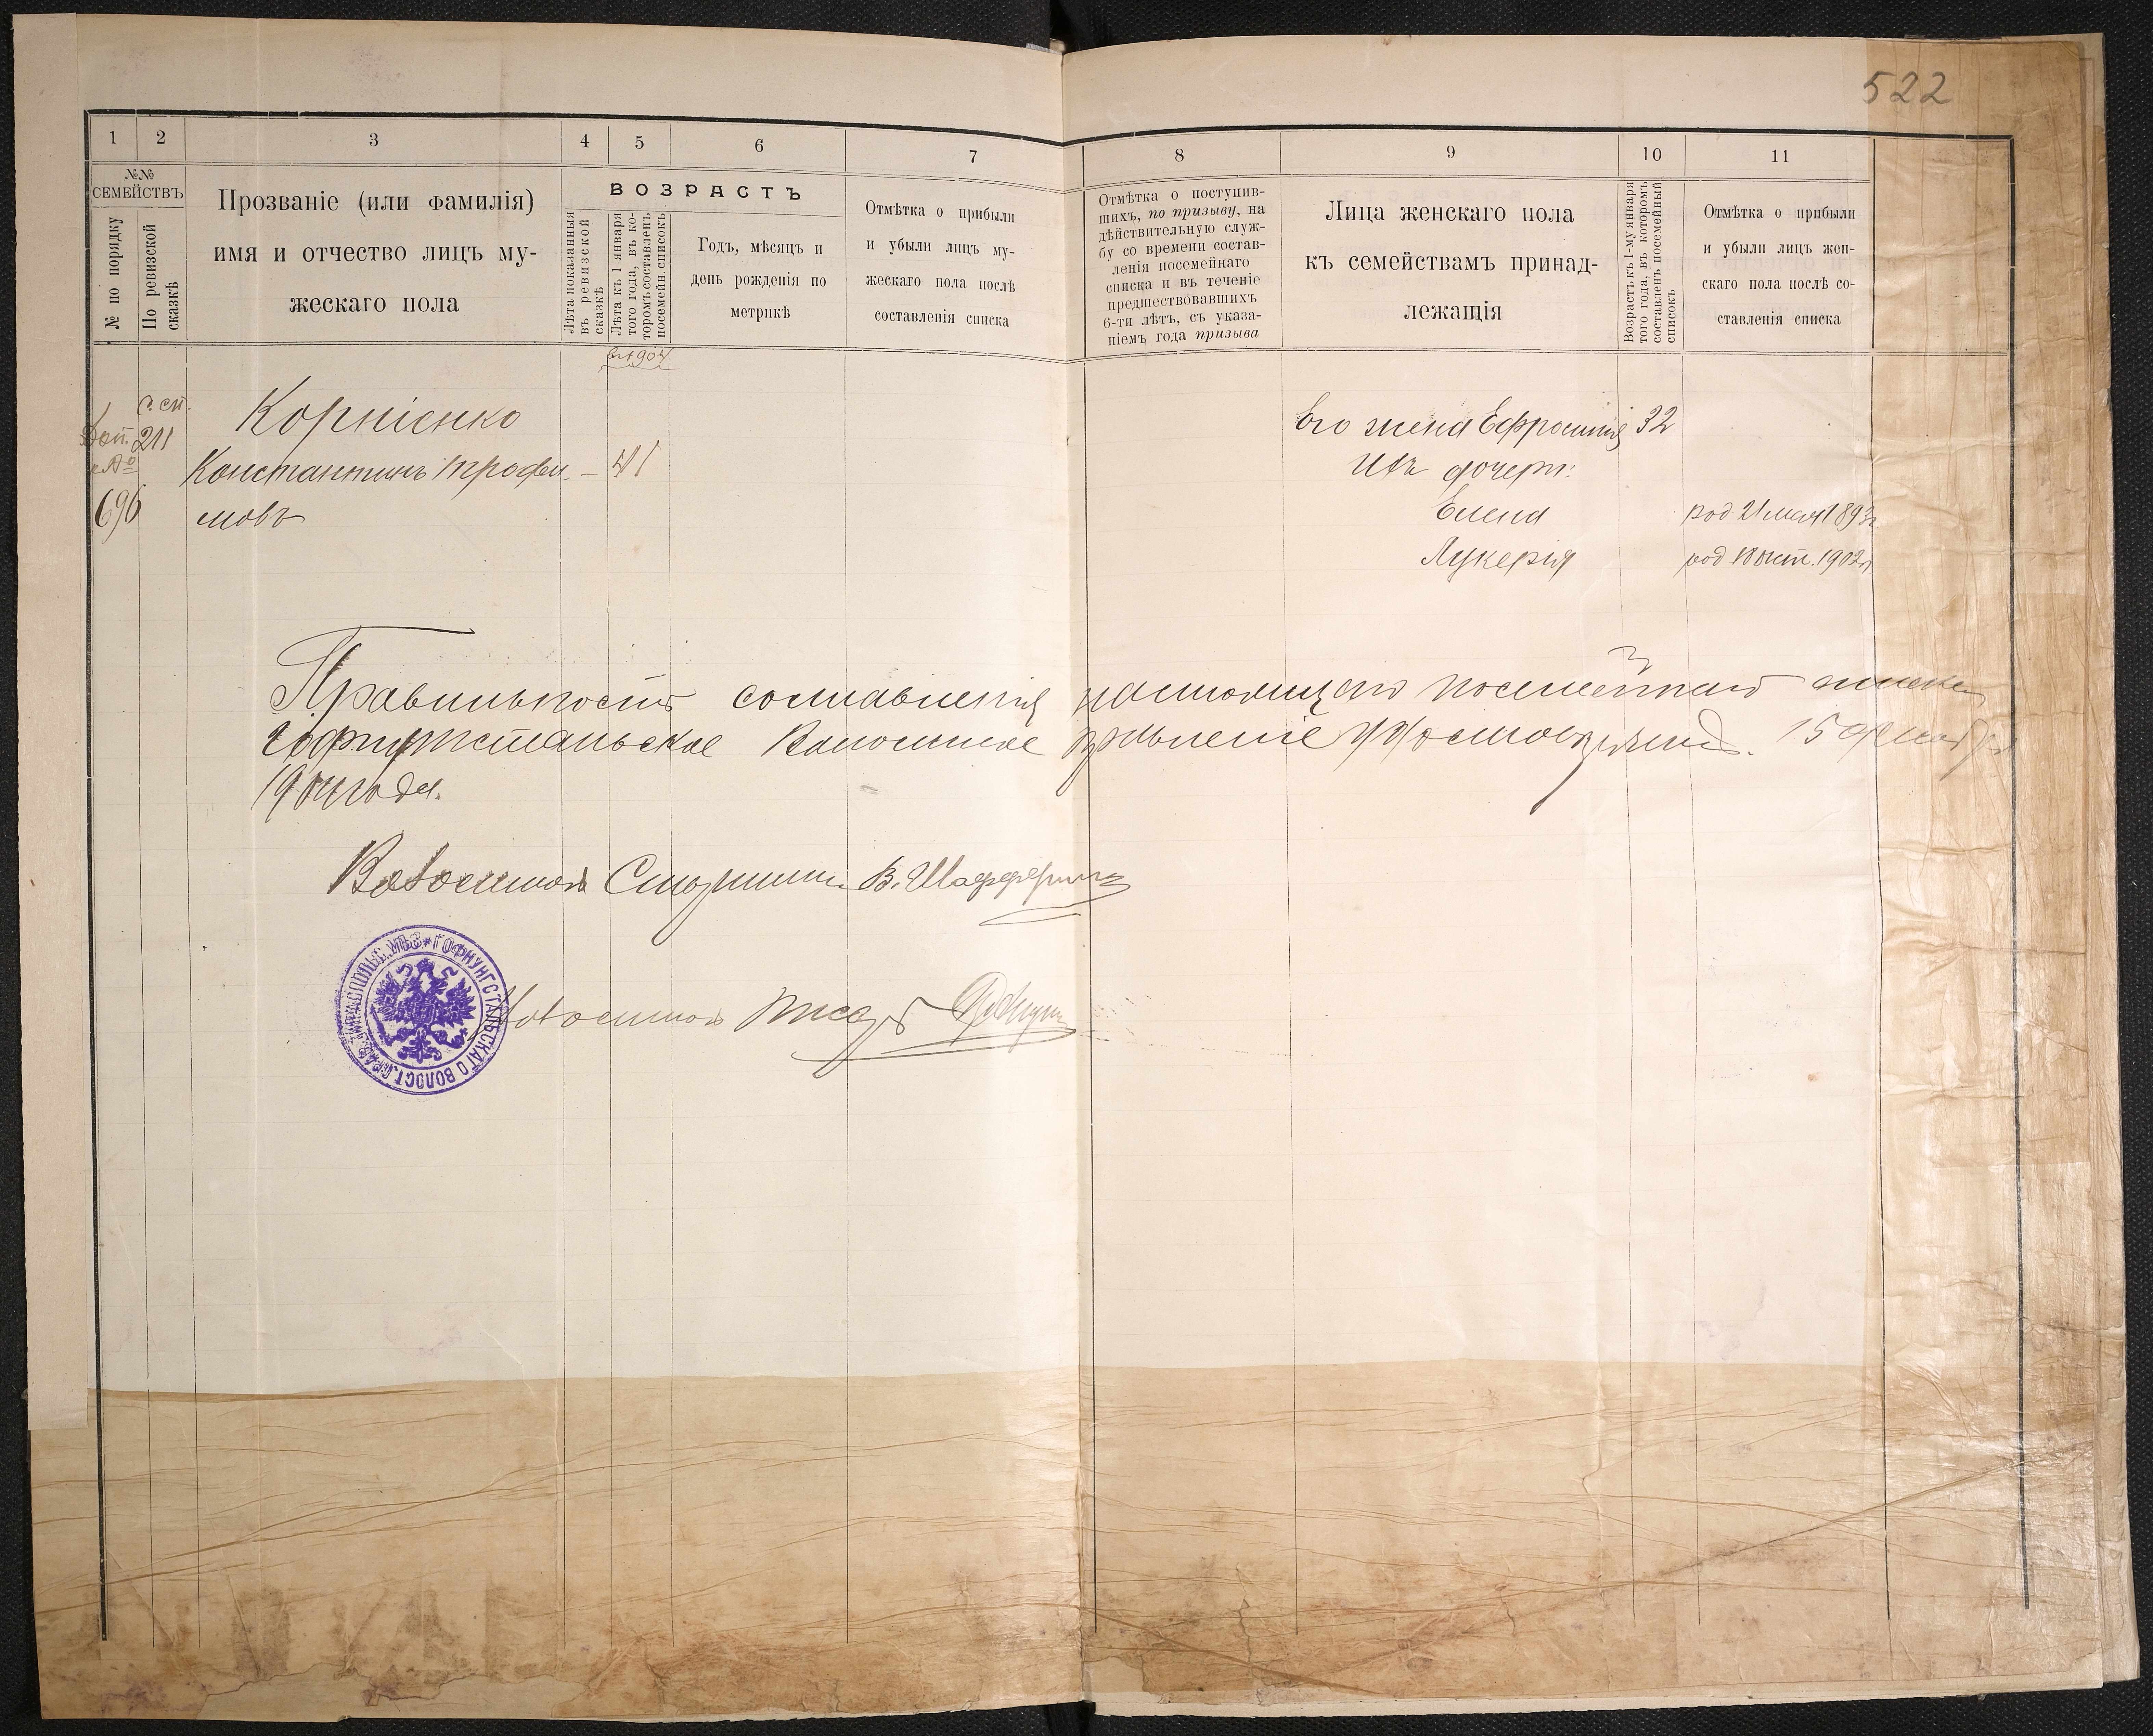 522
1 2 3 4 5 6 7 8 9 10 11
№№ СЕМЕЙСТВЪ
№ по порядку
По ревизской сказкѣ
Прозваніе (или фамилія)
имя и отчество лицъ му-
жескаго пола
ВОЗРАСТЪ
Лѣта показанныя
въ ревизской
сказкѣ
Лѣта къ 1 января
того года, въ ко-
торомъ составленъ
посемейн. списокъ
Годъ, мѣсяцъ и
день рожденія по
метрикѣ
Отмѣтка о прибыли
и убыли лицъ му-
жескаго пола послѣ
составленія списка
Отмѣтка о поступив-
шихъ, по призыву, на
дѣйствительную служ-
бу со времени состав-
ленія посемейнаго
списка и въ теченіе
предшествовавшихъ
6-ти лѣтъ, съ указа-
ніемъ года призыва
Лица женскаго пола
къ семействамъ принад-
лежащія
Возрастъ къ 1-му января
того года, въ которомъ
составленъ посемейный
списокъ
Отмѣтка о прибыли
и убыли лицъ жен-
скаго пола послѣ со-
ставленія списка
1904
211
696
Корніенко
Константинъ Трофи- – 41
мовъ
Его жена Ефросинія 32
Ихъ дочери:
Елена род 21 мая 1893г
Лукерія род 18 окт. 1902г
Правильность составленія настоящаго посемейнаго списка
Гофнунгстальское Волостное Правленіе удостовѣряетъ. 15
1904 года.
Волостной Старшина В.
Волостной Писарь
ГОФНУНГСТАЛЬСКАГО ВОЛОСТ. ПРАВ. ТИРАСПОЛЬС. УѢЗ.